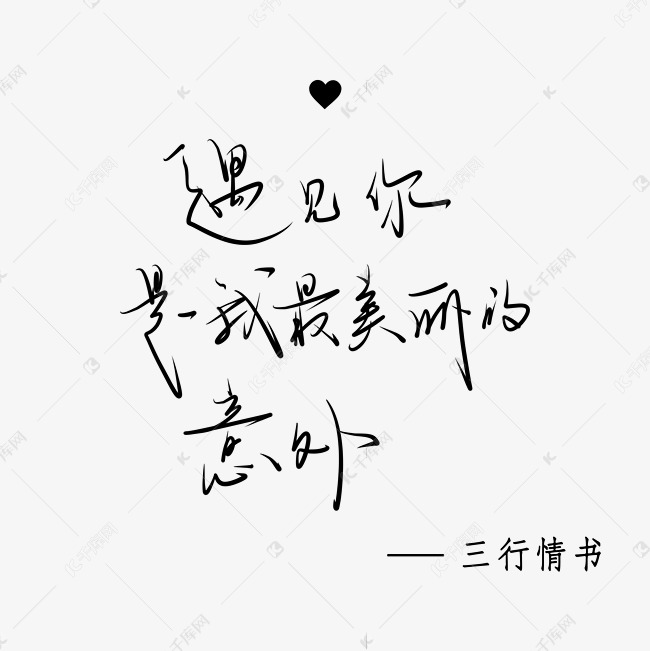 遇见你
是我最美丽的
意外
—— 三行情书